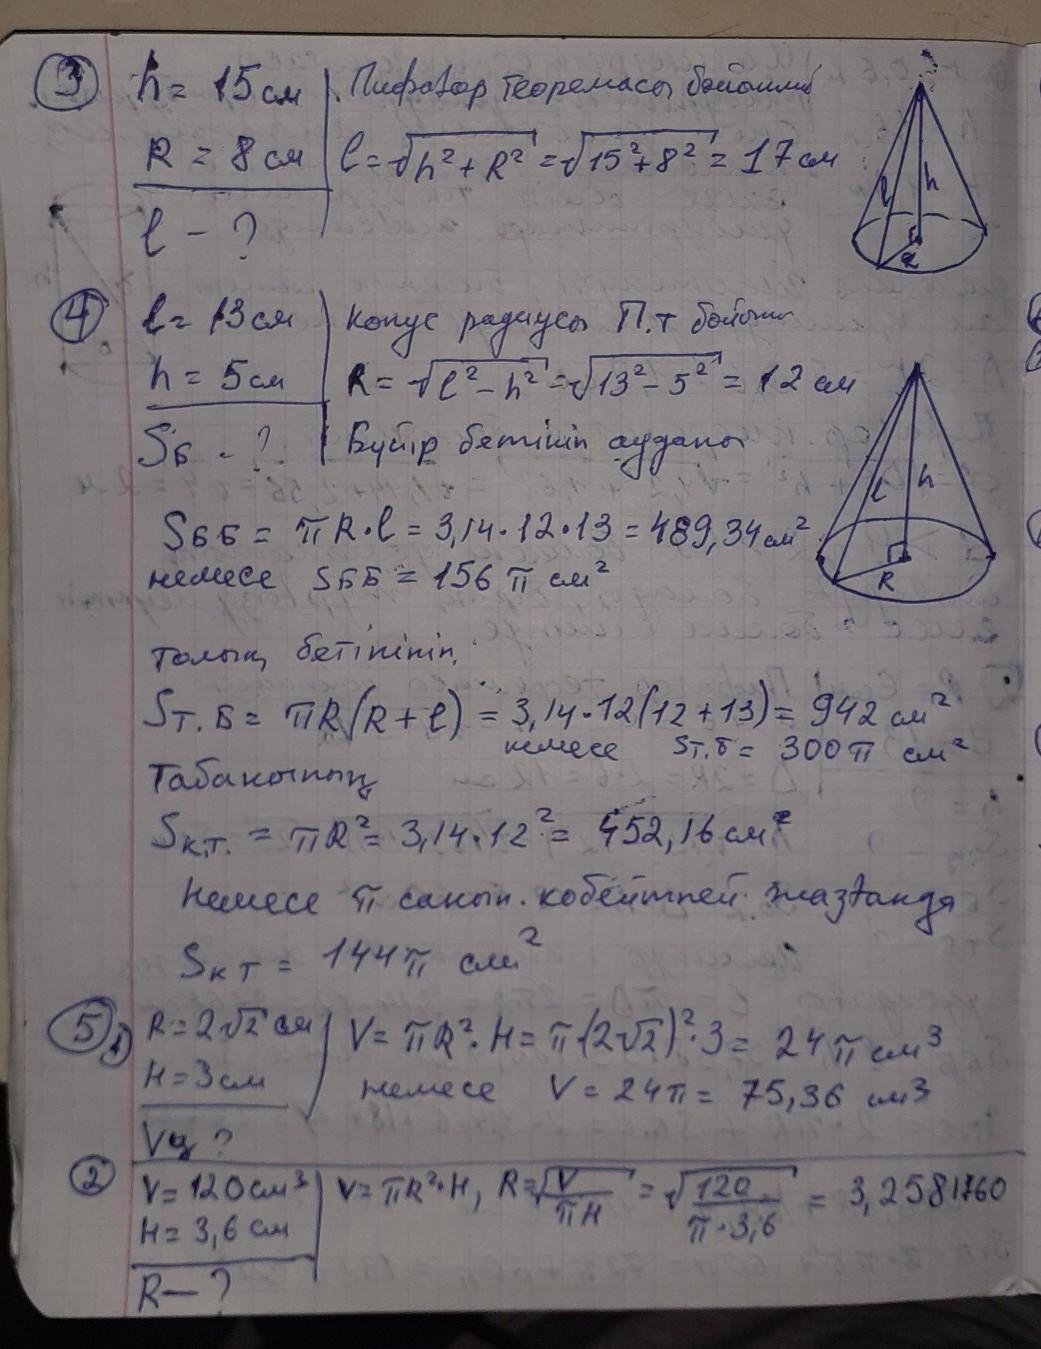 ③ h = 15 см | Пифагор теоремасы бойынша
R = 8 см | l = √h² + R² = √15² + 8² = 17 см
l - ?
l h R
④ l = 13 см | конус радиусы П.т бойынша
h = 5 см | R = √l² - h² = √13² - 5² = 12 см
Sб - ? | Бүйір бетінің ауданы
l h R
Sбб = πR·l = 3,14·12·13 = 489,34 см²
немесе Sбб = 156 π см²
толық бетінінің
Sт.б = πR(R + l) = 3,14·12(12 + 13) = 942 см²
немесе Sт.б = 300π см²
Табанының
Sк.т. = πR² = 3,14·12² = 452,16 см²
немесе π санын көбейтпей жазғанда
Sкт = 144π см²
⑤ 1) R = 2√2 см | V = πR²·H = π(2√2)²·3 = 24π см³
H = 3 см | немесе V = 24π = 75,36 см³
Vц ?
② V = 120 см³ | V = πR²·H, R = √V/πH = √120/π·3,6 = 3,2581760
H = 3,6 см
R — ?